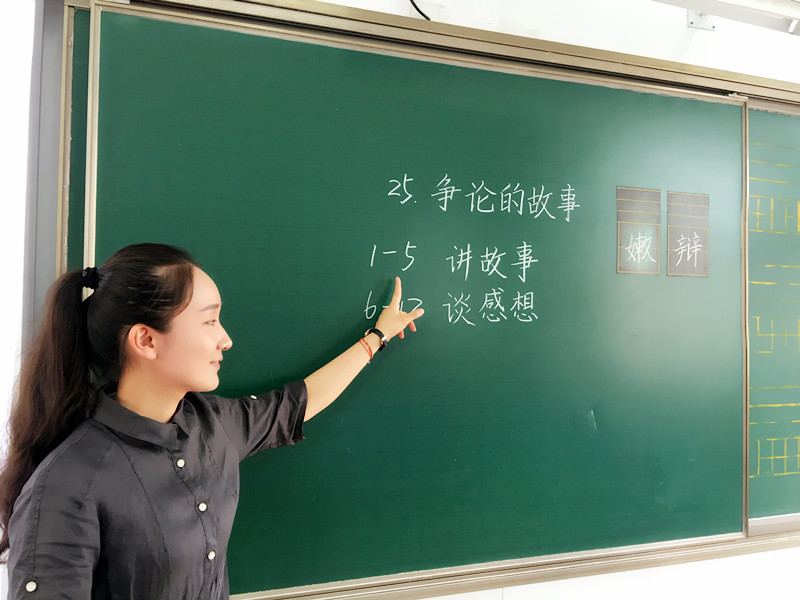 25. 争论的故事
嫩 辩
1-5 讲故事
6-12 谈感想